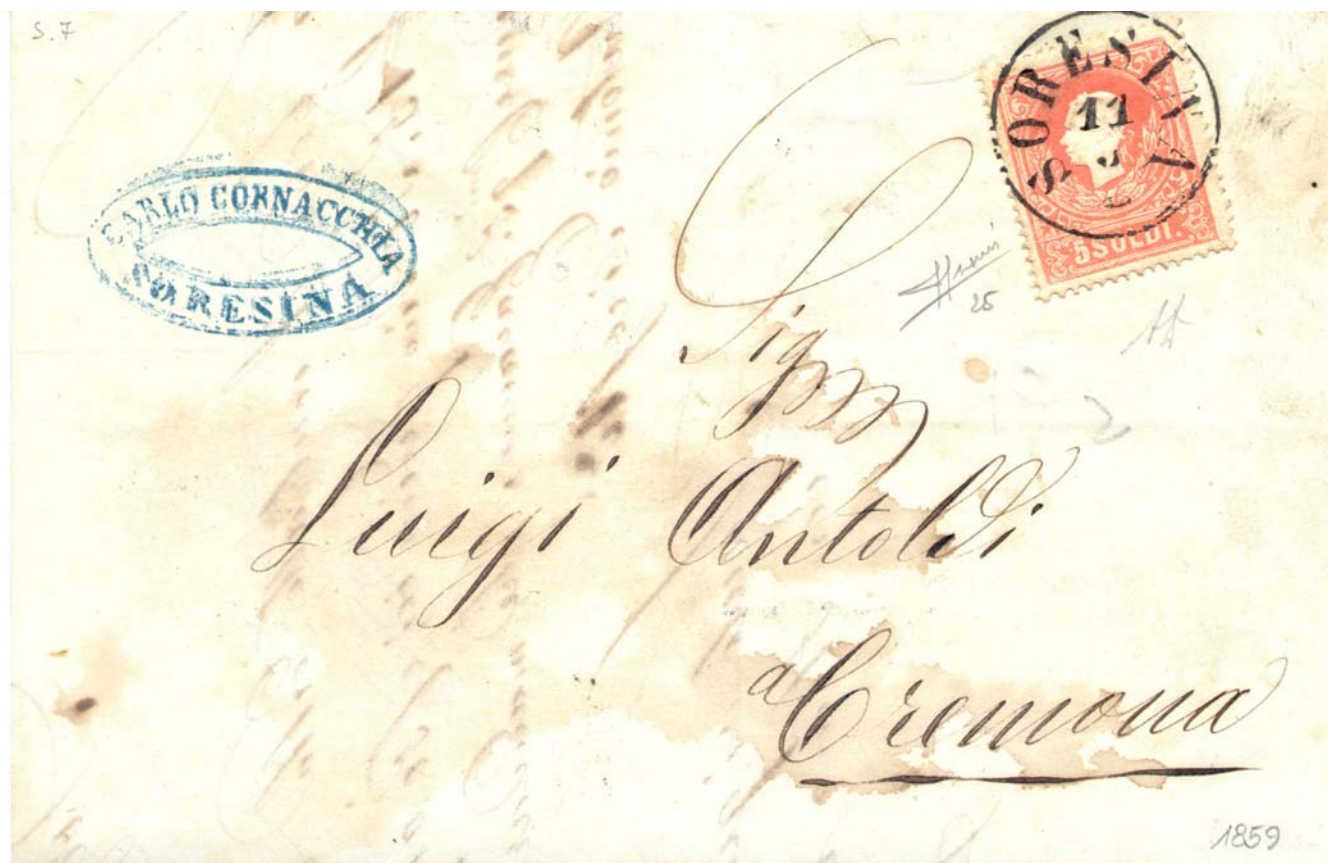 S.7
CARLO CORNACCHIA
SORESINA
SORESINA
11
5 SOLDI.
25
Sig
Luigi Antoldi
a Cremona
2
1859